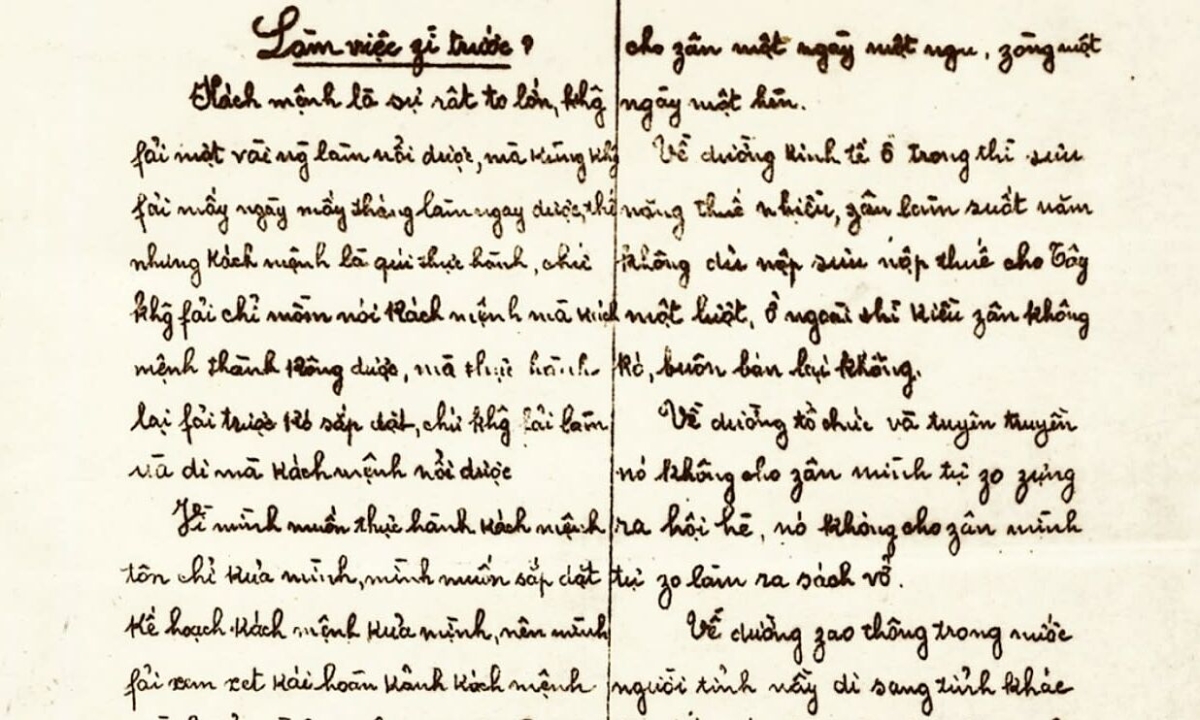 Làm việc gì trước?
Kách mệnh là sự rất to lớn, khg
fải một vài ng làm nổi được, mà kũng khg
fải mấy ngày mấy tháng làm ngay được, thế
nhưng kách mệnh là quí thực hành, chứ
khg fải chỉ mồm nói kách mệnh mà kách
mệnh thành kông được, mà thực hành
lại fải trước kó sắp đặt, chứ khg fải làm
và đi mà kách mệnh nổi được
Vì mình muốn thực hành kách mệnh
tôn chỉ kủa mình, mình muốn sắp đặt
kế hoạch kách mệnh kủa mình, nên mình
fải xem xet kái hoàn kảnh kách mệnh
cho zân một ngày một ngu, zòng một
ngày một hèn.
Về đường kinh tế ở trong thì sưu
nặng thuế nhiều, zân làm suốt năm
không đủ nộp sưu nộp thuế cho Tây
một lượt, ở ngoài thì kiều zân không
kó, buôn bán lại không.
Về đường tổ chức và tuyên truyền
nó không cho zân mình tự zo zựng
ra hội hè, nó không cho zân mình
tự zo làm ra sách vở.
Về đường zao thông trong nước
người tỉnh nầy đi sang tỉnh khác